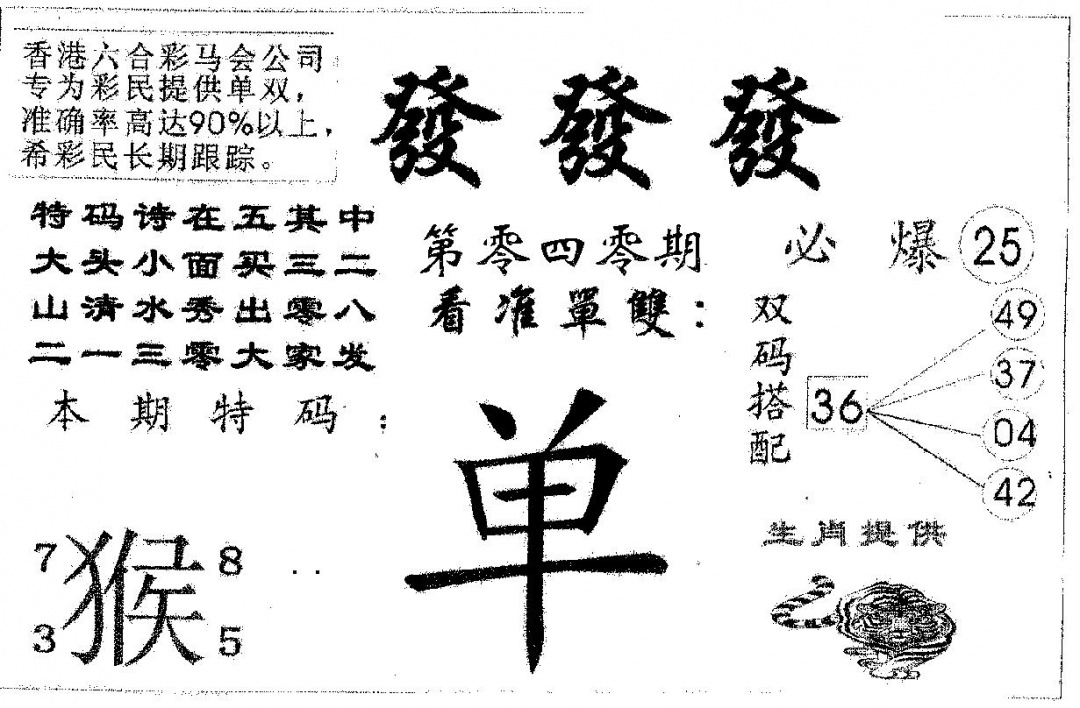 香港六合彩马会公司
专为彩民提供单双，
准确率高达90%以上，
希彩民长期跟踪。
發發發
特码诗在五其中
大头小面买三二
山清水秀出零八
二一三零大家发
本期特码：
第零四零期
看准單雙：
单
必爆 25
双码搭配
36
49
37
04
42
生肖提供
7 猴 8
3 5